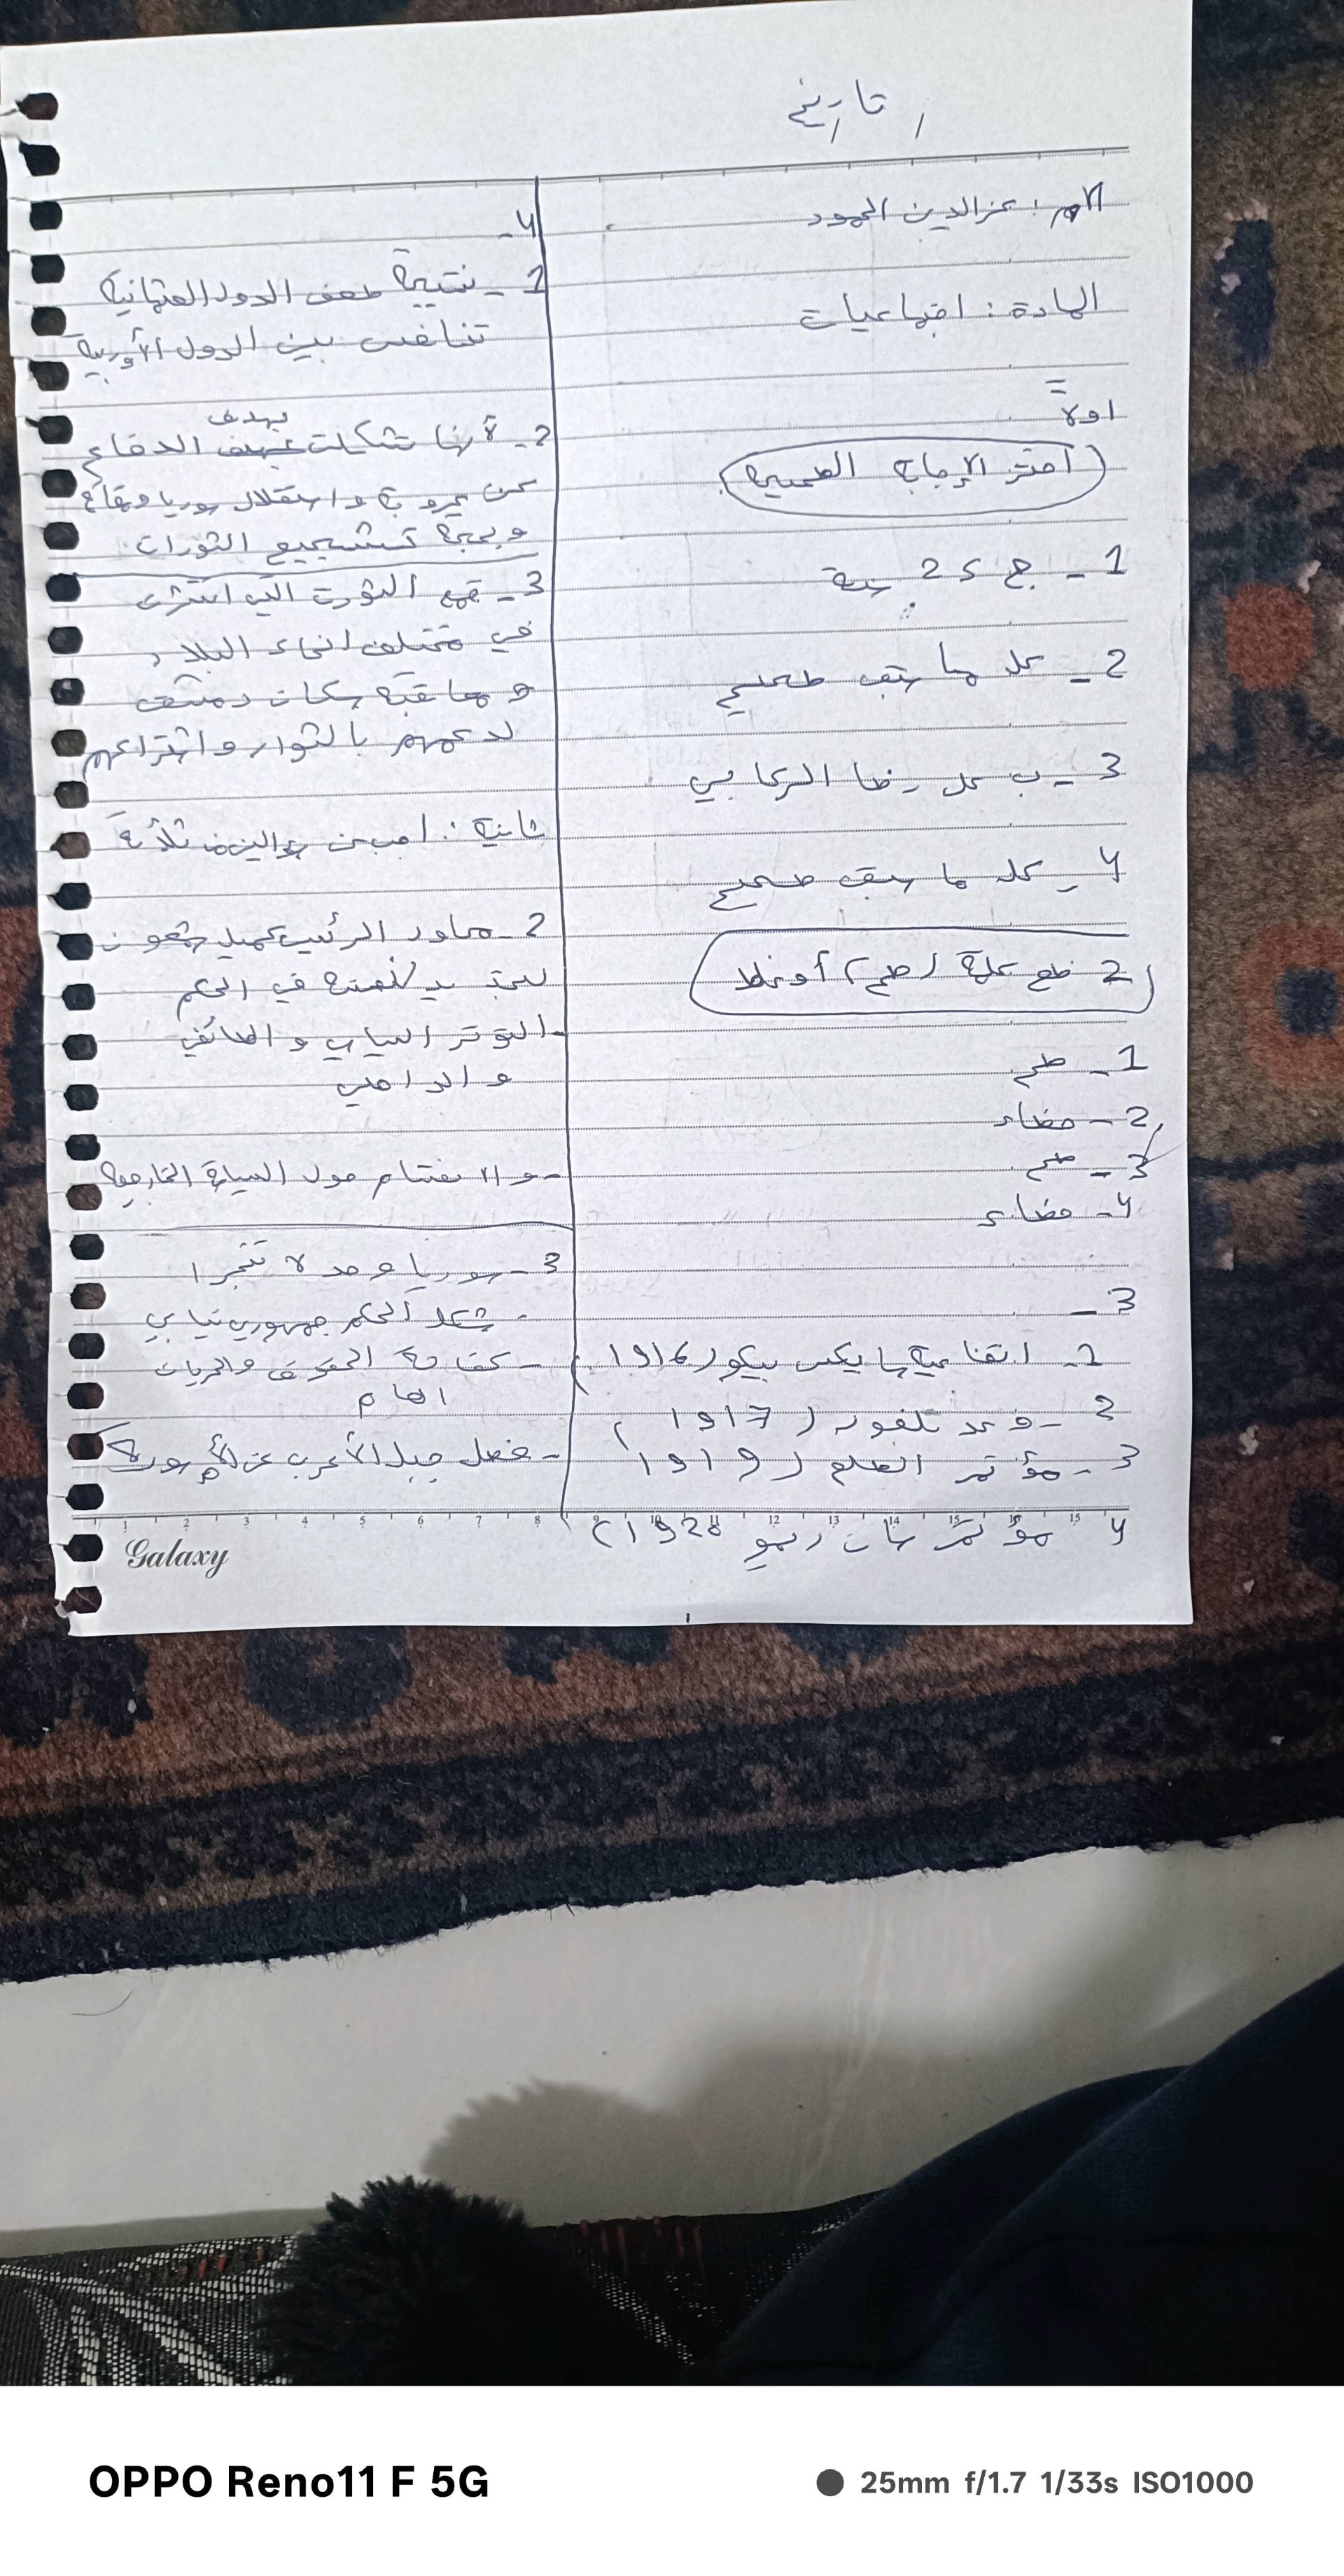 تاريخ
الاسم: عزالدين الحمود
المادة: اجتماعيات
اولاً
اختر الإجابة الصحيحة
1- ج 25 سنة
2- كل ما سبق صحيح
3- ب علي رضا الركابي
4- كل ما سبق صحيح
2 ضع كلمة (صح) أو خطا
1- صح
2- خطاء
3- صح
4- خطاء
3-
1- اتفاقية سايكس بيكو (1916)
2- وعد بلفور (1917)
3- مؤتمر الصلح (1919)
4 مؤتمر سان ريمو 1920)
4-
1- نتيجة ضعف الدولة العثمانية
تنافس بين الدول الأوربية
2- لأنها شكلت بهدف الدفاع
عن عروبة واستقلال سوريا
وبحجة تشجيع الثورات
3- قمع الثورة التي انتشرت
في مختلف انحاء البلاد,
و معاقبة سكان دمشق
لدعمهم بالثوار و اشتراكهم
ثانية: اجب عن سوالين من ثلاثة
2- محاولة الرئيس كميل شمعون
لتجديد لنفسه في الحكم
-التوتر السياسي و الطائفي
و الداخلي
-و الانقسام حول السياسة الخارجية
3- سوريا وحدة لا تتجزا
- شكل الحكم جمهوري نيابي
- كفالة الحقوق والحريات
العام
- فصل جبل الأعرب عن الأم سورية
1 2 3 4 5 6 7 8 12 13 14 15 16 15
Galaxy
OPPO Reno11 F 5G
25mm f/1.7 1/33s ISO1000